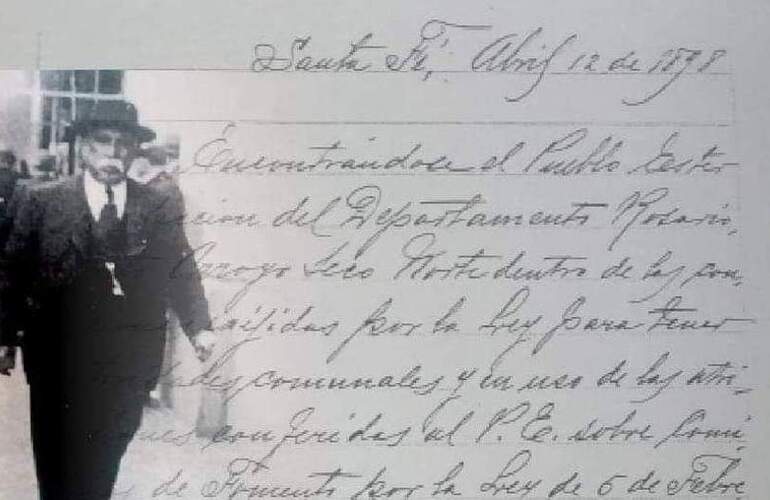 Santa Fé, Abril 12 de 1898
Encontrándose el Pueblo Ester
del Departamento Rosario,
Arroyo Seco Norte dentro de las con,
exijidas por la Ley para tener
comunales y en uso de las atri-
conferidas al P. E. sobre Comi,
de Fomento por la Ley de 5 de Febre